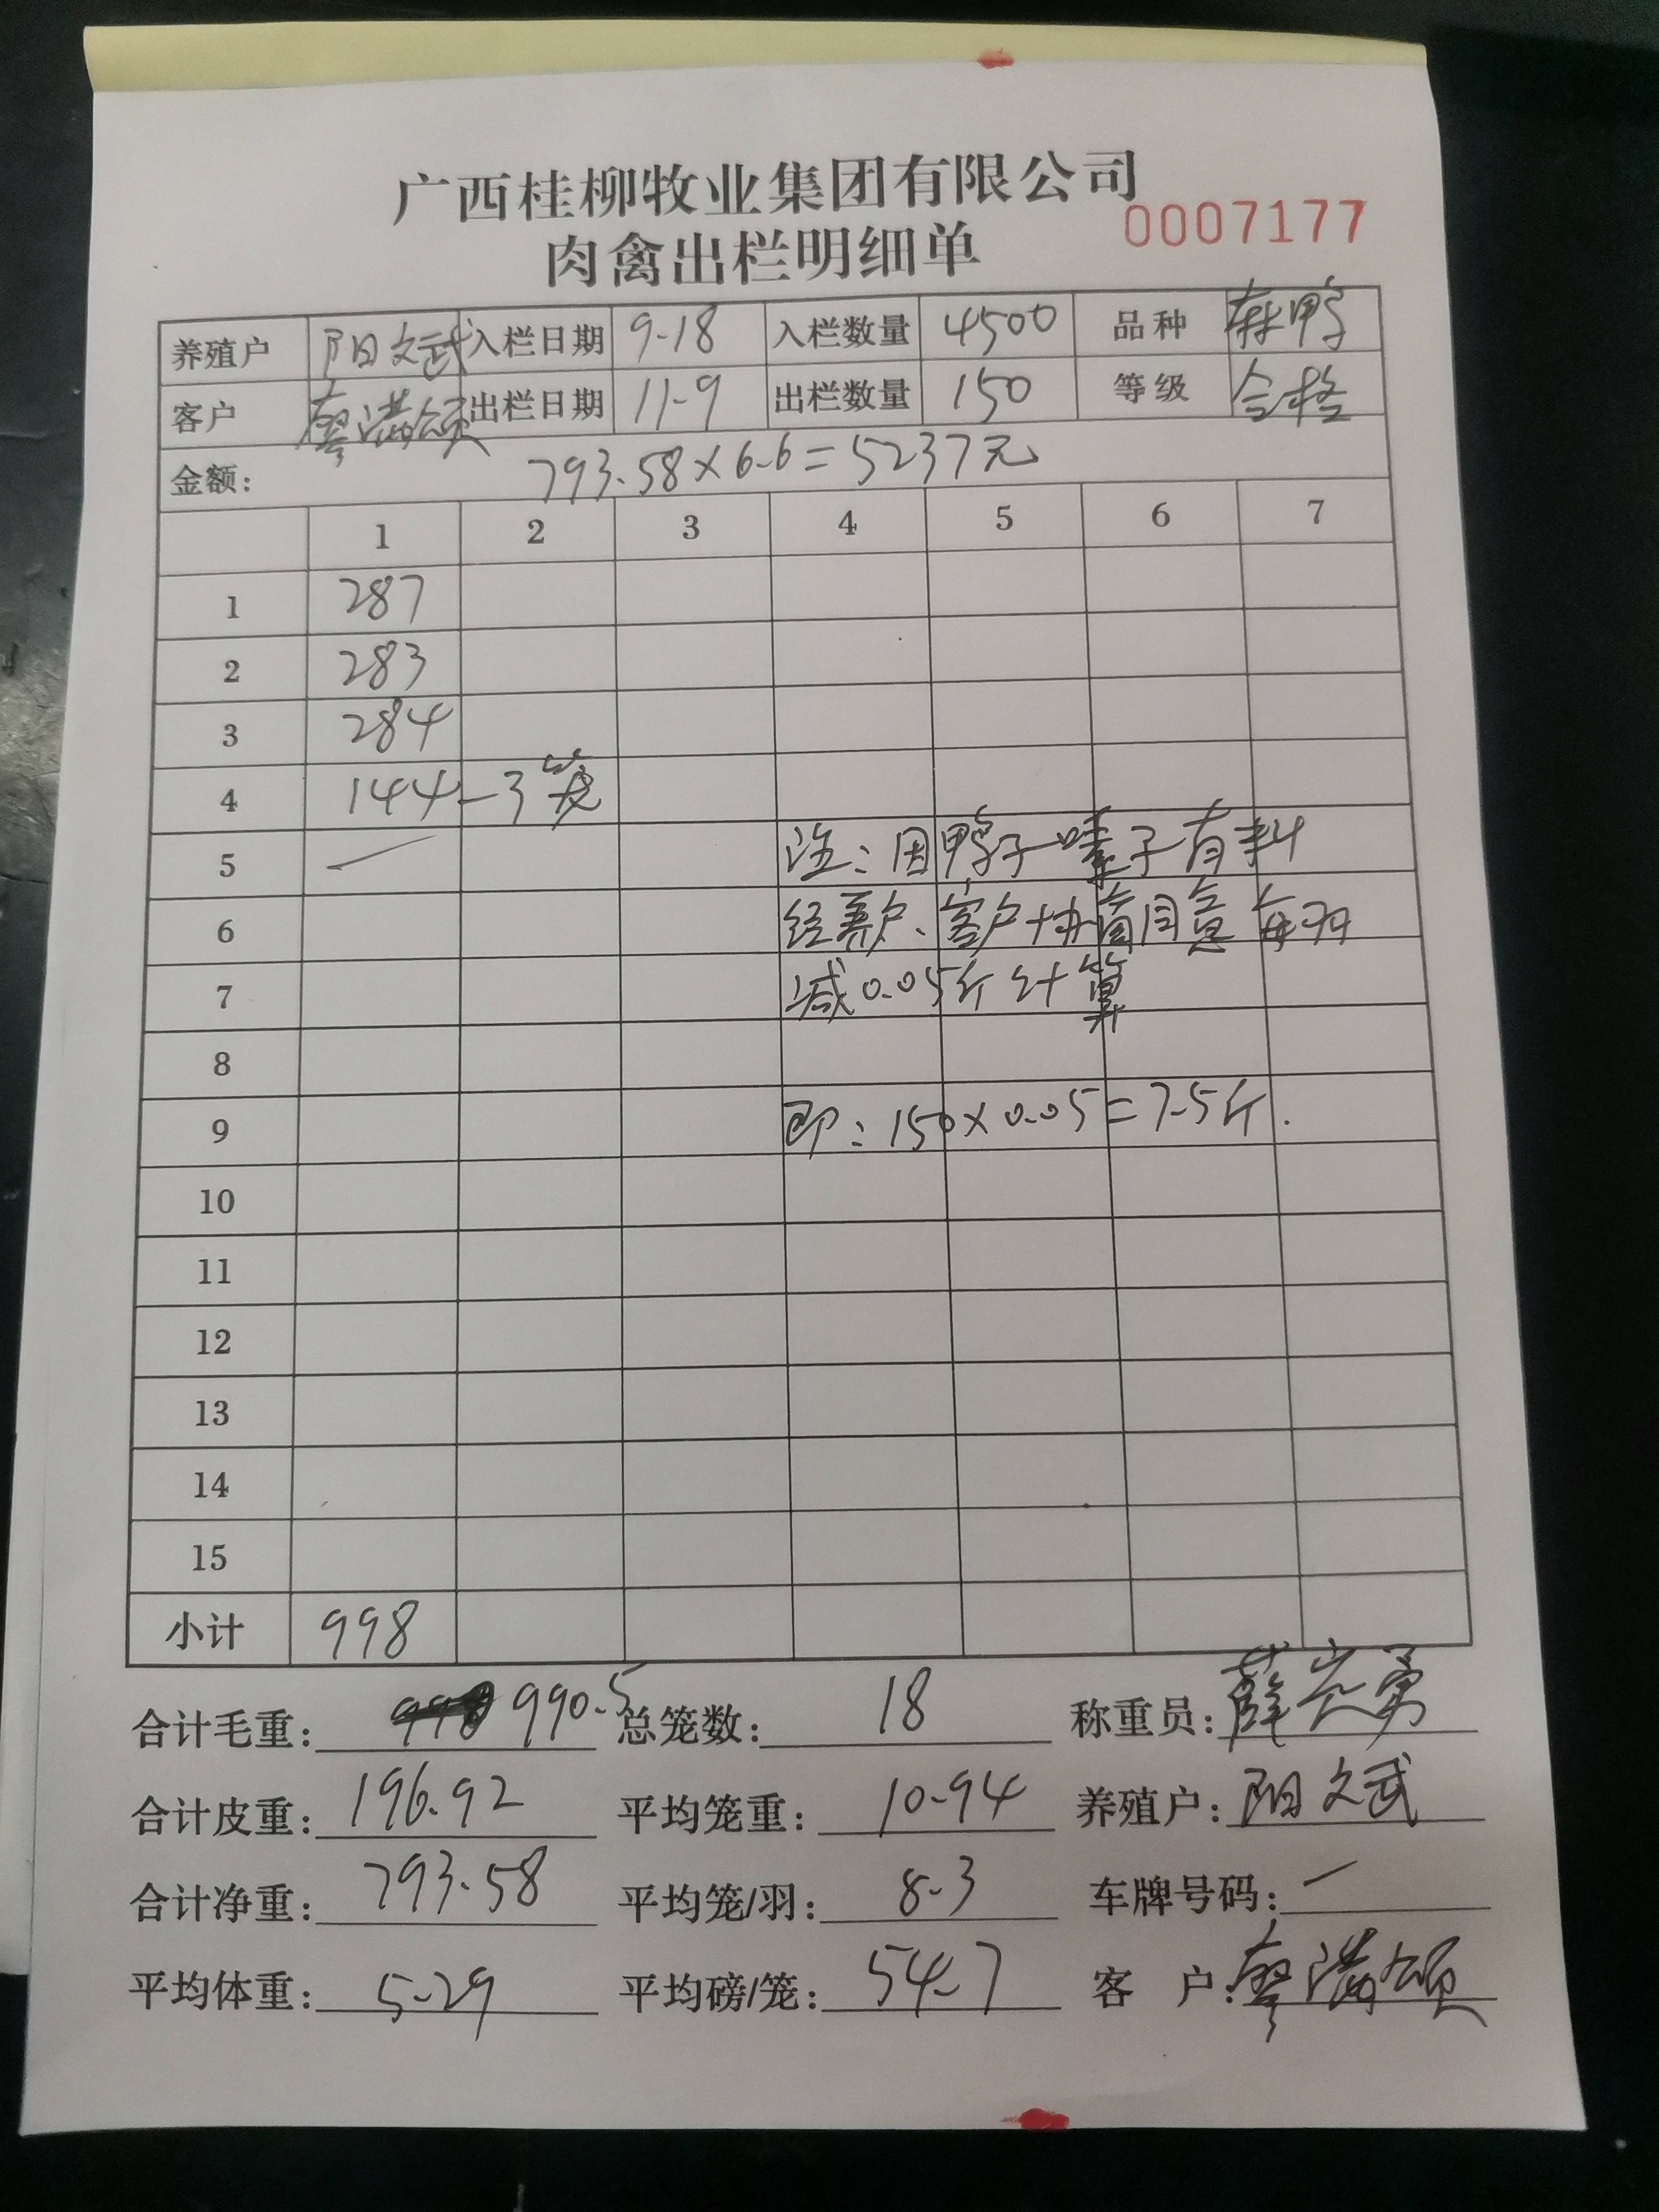 广西桂柳牧业集团有限公司
肉禽出栏明细单 0007177
养殖户 阳文武 入栏日期 9-18 入栏数量 4500 品种 麻鸭
客户 廖满颂 出栏日期 11-9 出栏数量 150 等级 合格
金额: 793.58×6.6=5237元
1 2 3 4 5 6 7
1 287
2 283
3 284
4 144-3笼
5 — 注:因鸭子嗉子有料
6 经养户、客户协商同意每羽
7 减0.05斤计算
8
9 即:150×0.05=7.5斤.
10
11
12
13
14
15
小计 998
合计毛重: 990.5 总笼数: 18 称重员:
合计皮重: 196.92 平均笼重: 10.94 养殖户: 阳文武
合计净重: 793.58 平均笼/羽: 8.3 车牌号码: —
平均体重: 5.29 平均磅/笼: 54.7 客 户: 廖满颂